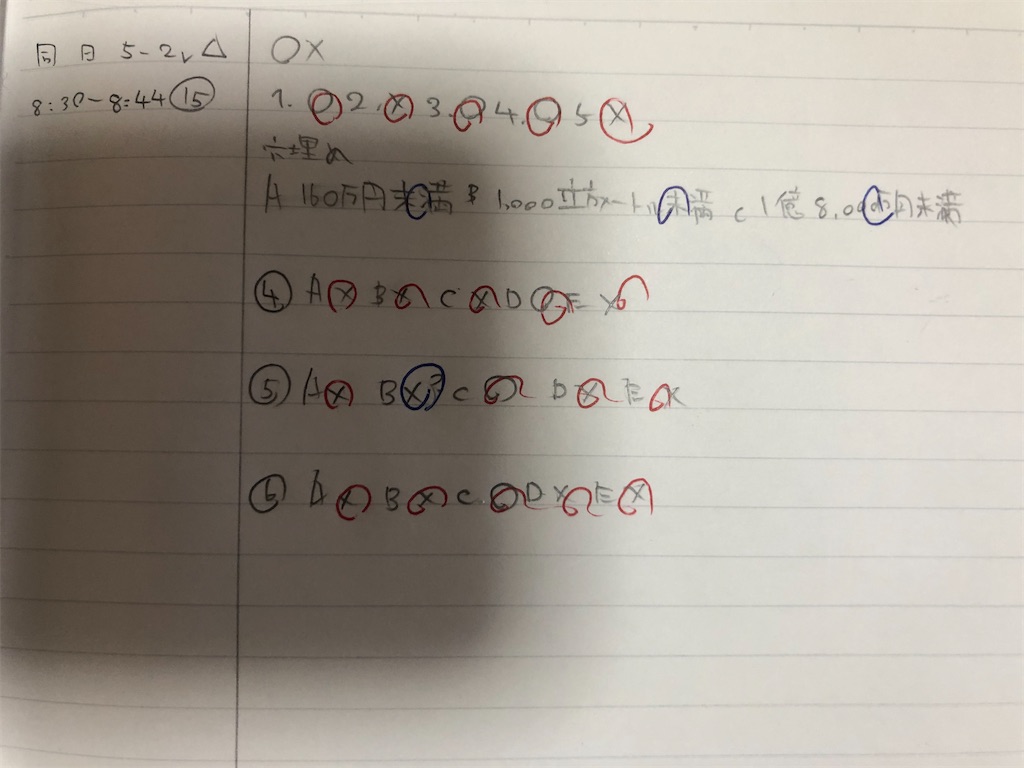 同日 5-2、△
8:30-8:44 ⑮
〇×
1. 〇 2. × 3. 〇 4. 〇 5 ×
穴埋め
A 160万円未満 B 1,000立方メートル未満 C 1億8,000万円未満
④ A × B × C × D 〇 E ×
⑤ A × B × C 〇 D × E ×
⑥ A × B × C 〇 D × E ×